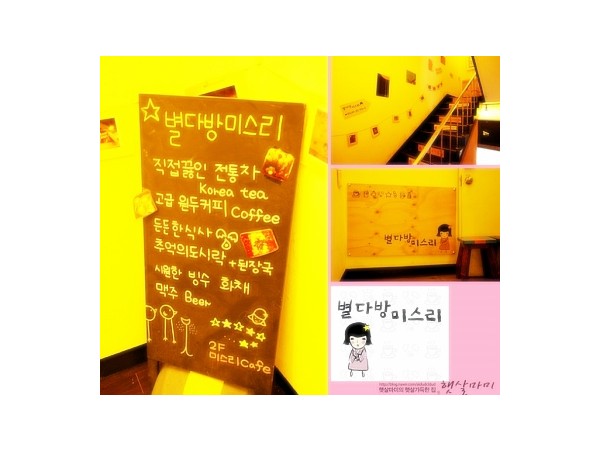 별다방미스리
직접끓인 전통차
Korea tea
고급 원두커피 Coffee
든든한식사
추억의도시락+된장국
시원한 빙수 화채
맥주 Beer
2F
미스리Cafe
별다방미스리
별다방미스리
햇살마미의 햇살가득한 집
햇살마미